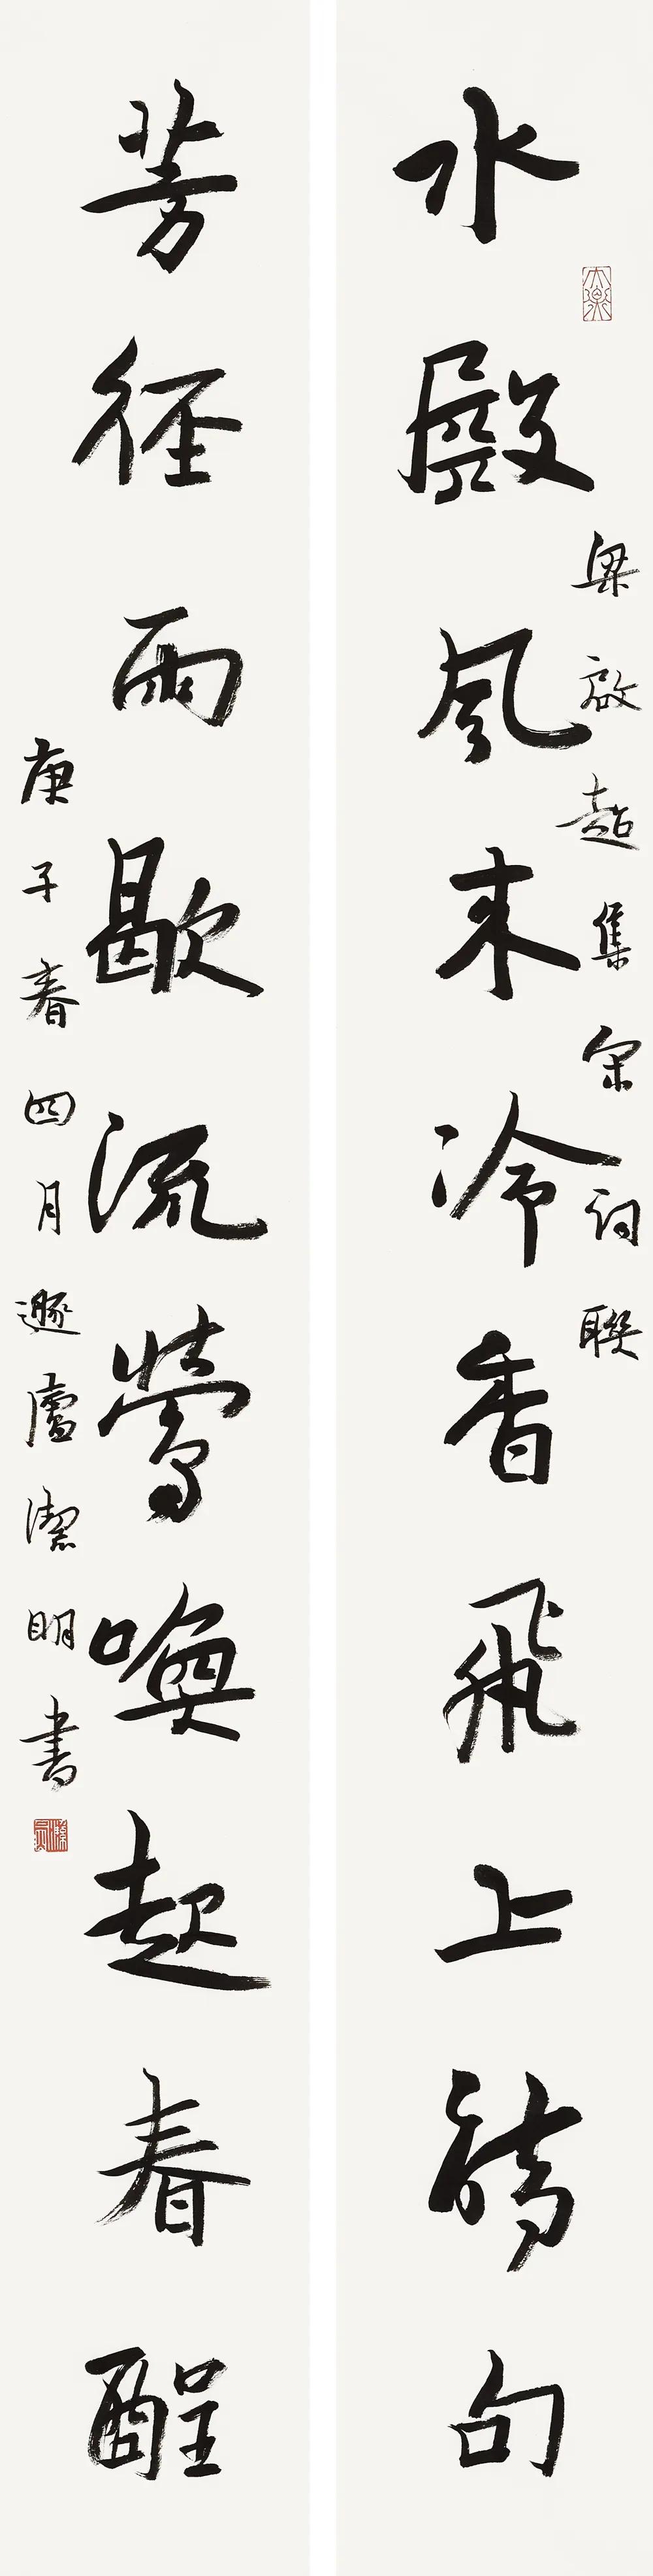 水殿風来冷香飛上詩句
梁啟超集宋词聯
芳徑雨歇流鶯喚起春酲
庚子春四月遯廬潔明書